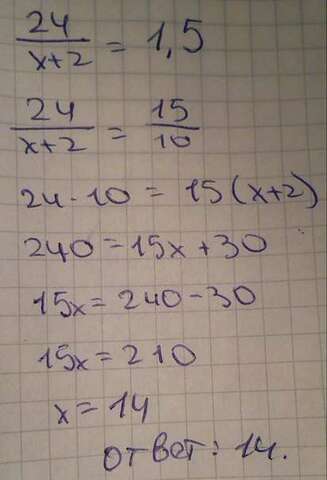 24/(x+2) = 1,5
24/(x+2) = 15/10
24 · 10 = 15(x+2)
240 = 15x + 30
15x = 240 - 30
15x = 210
x = 14
ответ: 14.